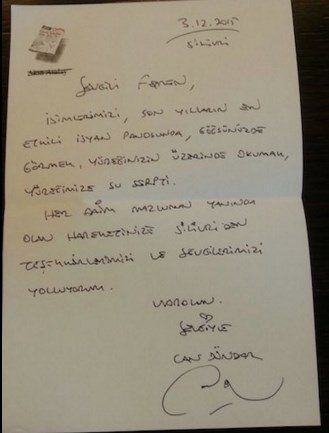 3.12.2015
SİLİVRİ
SEVGİLİ FEMEN,
İSİMLERİMİZİ, SON YILLARIN EN
ETKİLİ İSYAN PANOSUNDA, GÖĞSÜNÜZDE
GÖRMEK, YÜREĞİNİZİN ÜZERİNDE OKUMAK,
YÜREĞİMİZE SU SERPTİ.
HER DAİM MAZLUMUN YANINDA
OLAN HAREKETİNİZE SİLİVRİ'DEN
TEŞEKKÜRLERİMİZİ VE SEVGİLERİMİZİ
YOLLUYORUM.
VAROLUN.
SEVGİYLE
CAN DÜNDAR